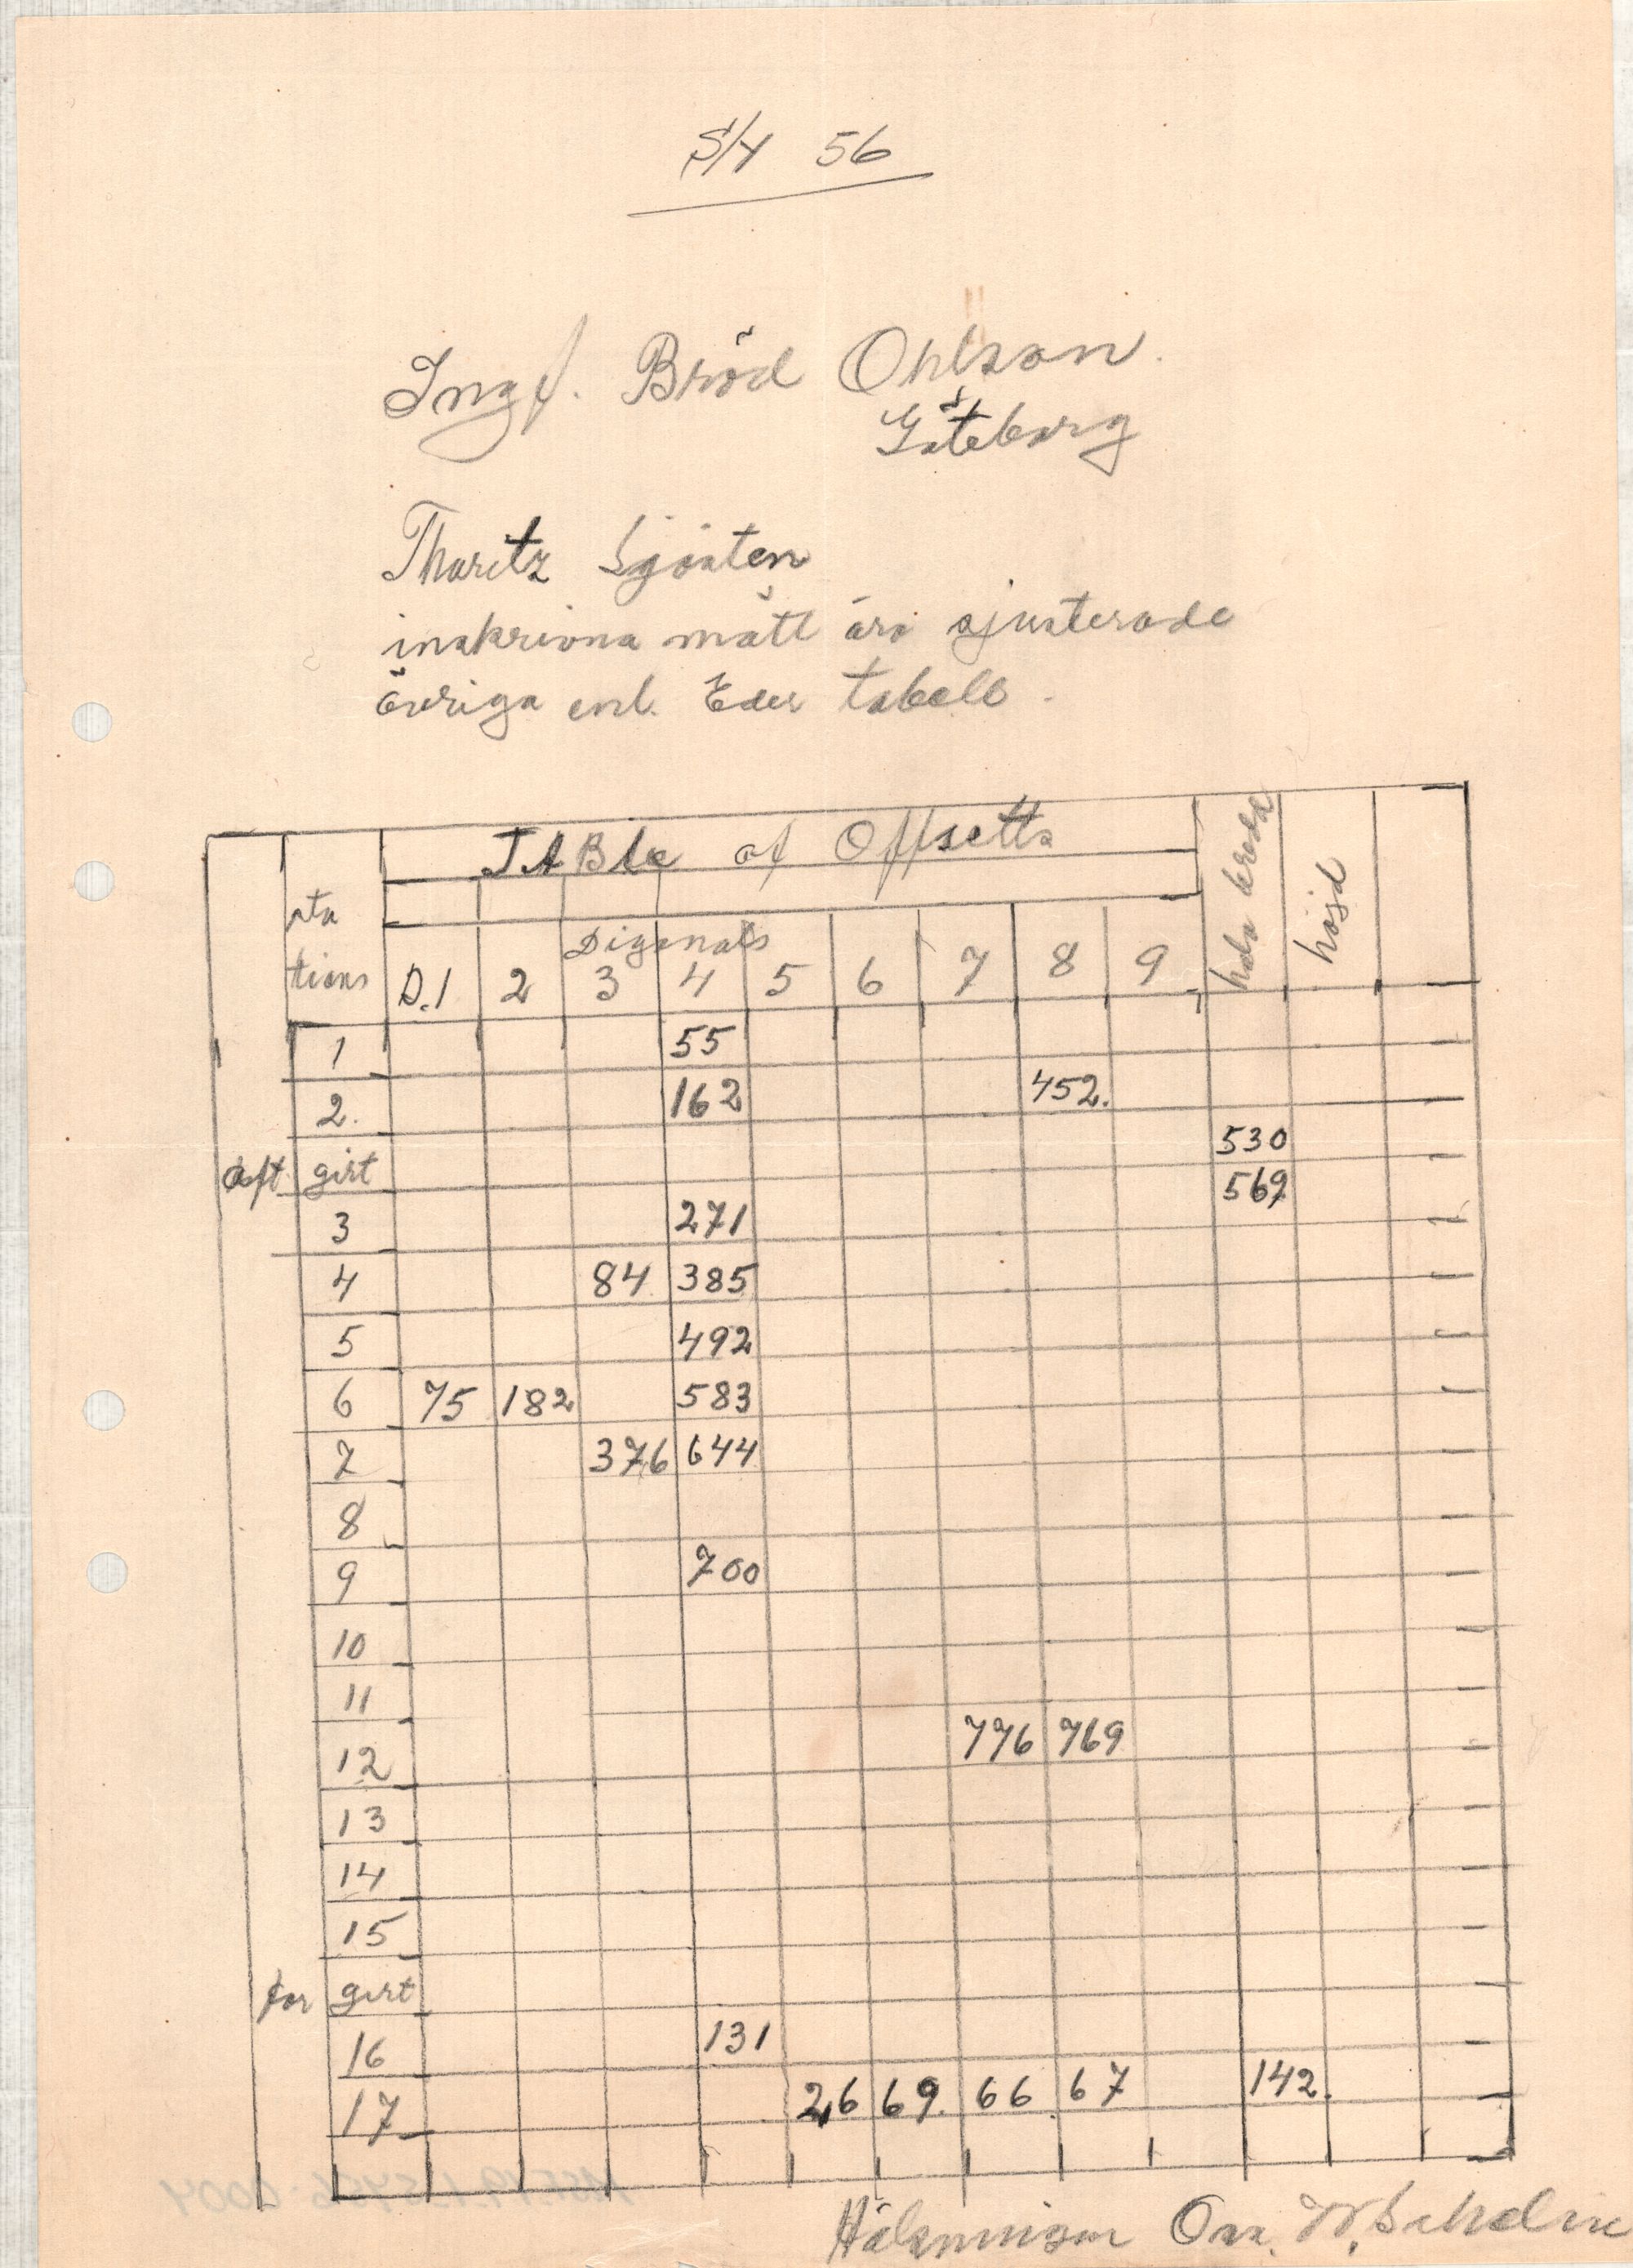 S/Y 56
Ing f. Bröd Ohlson.
Göteborg
Thoritz Sjösten
inskrivna mått äro ajusterade
övriga enl. Eder tabell.
TABLe of Offsetts
sta
tions
Digonals
höjd
D.1 2 3 4 5 6 7 8 9
1 55
2. 162 452.
530
aft girt 569
3 271
4 84 385
5 492
6 75 182 583
7 376 644
8
9 700
10
11
12 776 769
13
14
15
for girt
16 131
17 26 69. 66 67 142.
Hälsningar